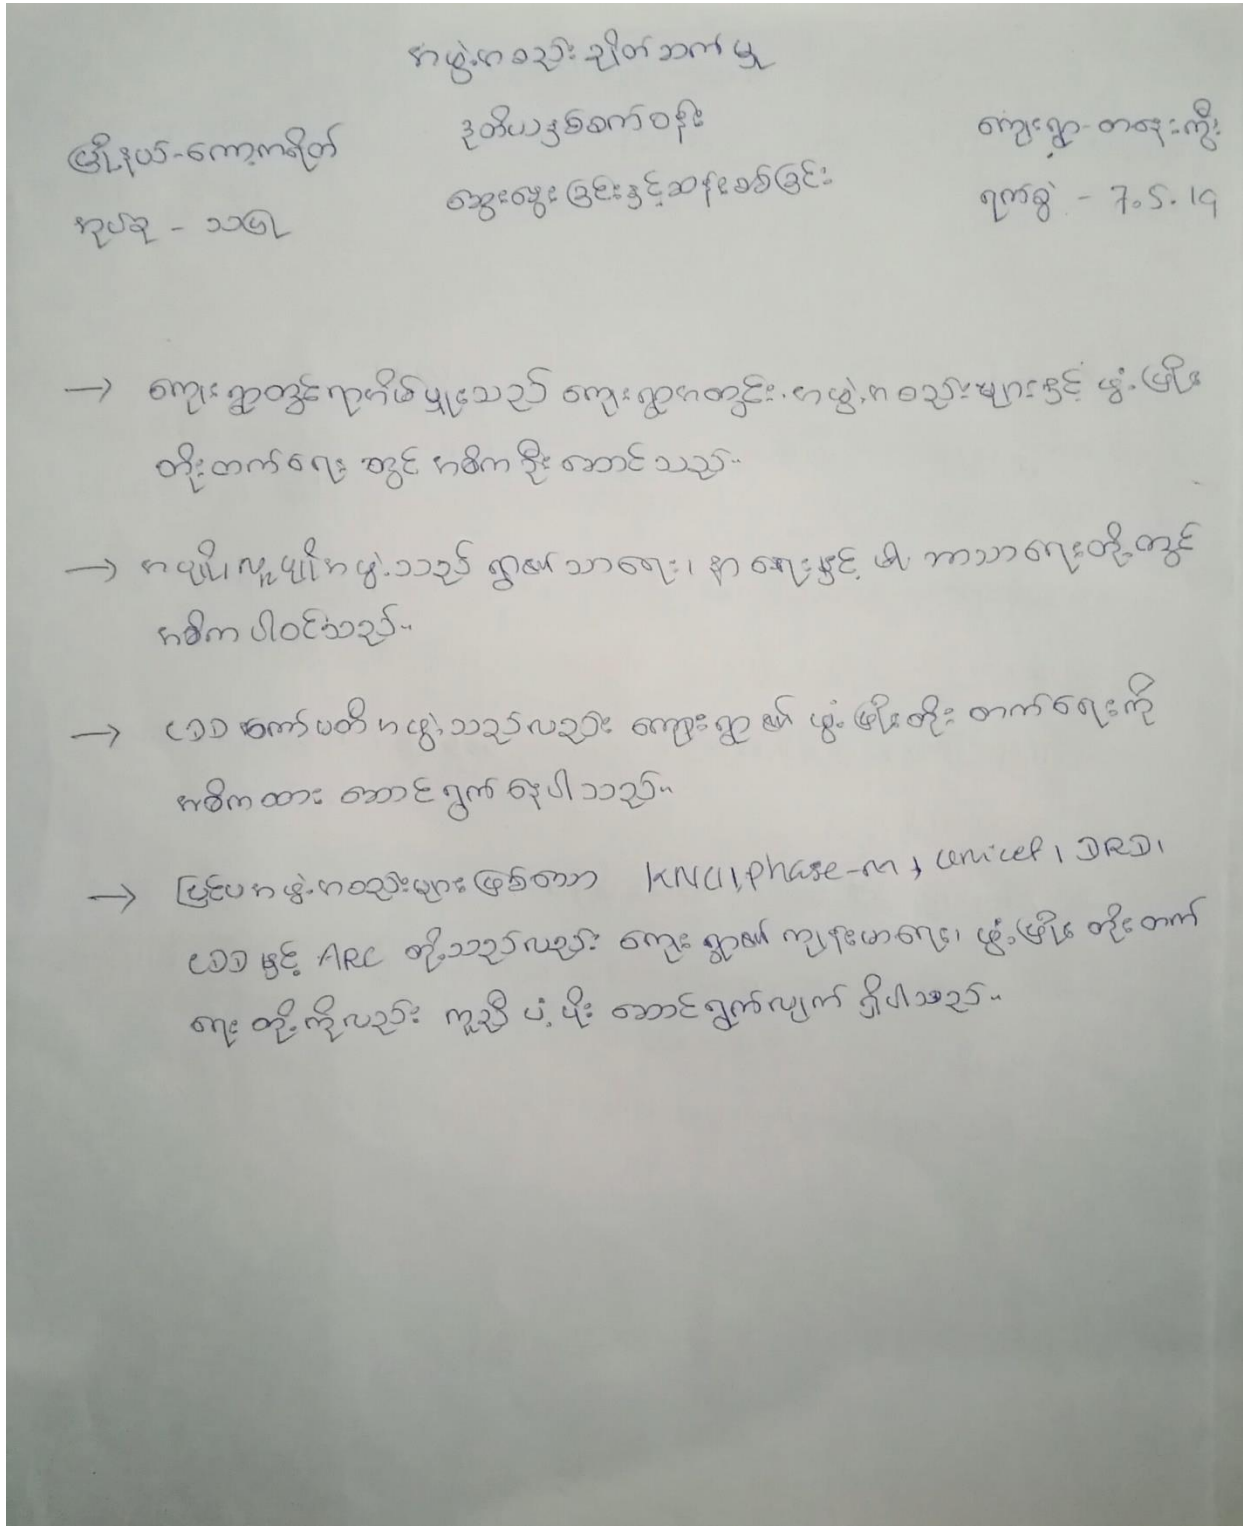 အဖွဲ့အစည်းချိတ်ဆက်မှု
မြို့နယ်-ကော့ကရိတ် ဒုတိယနှစ်စက်ဝန်း ကျေးရွာ-တနေးကွီး
အုပ်စု - သမု ဆွေးနွေးခြင်းနှင့်ဆန်းစစ်ခြင်း ရက်စွဲ - 7.5.19
→ ကျေးရွာတွင်ရာအိမ်မှုးသည် ကျေးရွာအတွင်းအဖွဲ့အစည်းများနှင့် ဖွံ့မြိုး
တိုးတက်ရေး တွင် အဓိကဦးဆောင်သည်။
→ အပျို၊လူပျိုအဖွဲ့သည် ရွာ၏သာရေး၊ နာရေးနှင့် ဘာသာရေးတို့တွင်
အဓိကပါဝင်သည်။
→ CDD ကော်မတီအဖွဲ့သည်လည်း ကျေးရွာ၏ ဖွံ့မြိုးတိုးတက်ရေးကို
အဓိကထား ဆောင်ရွက်နေပါသည်။
→ ပြင်ပအဖွဲ့အစည်းများဖြစ်သော KNU, phase-m, unicef, DRD,
CDD နှင့် ARC တို့သည်လည်း ကျေးရွာ၏ ကျန်းမာရေး၊ ဖွံ့မြိုးတိုးတက်
ရေးတို့ကိုလည်း ကူညီပံ့ပိုး ဆောင်ရွက်လျက် ရှိပါသည်။